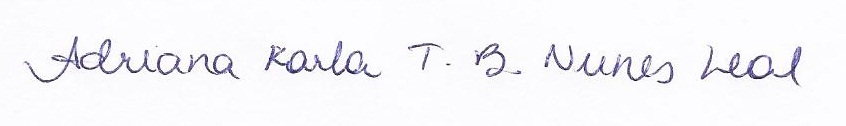 Adriana Karla T. B. Nunes Leal